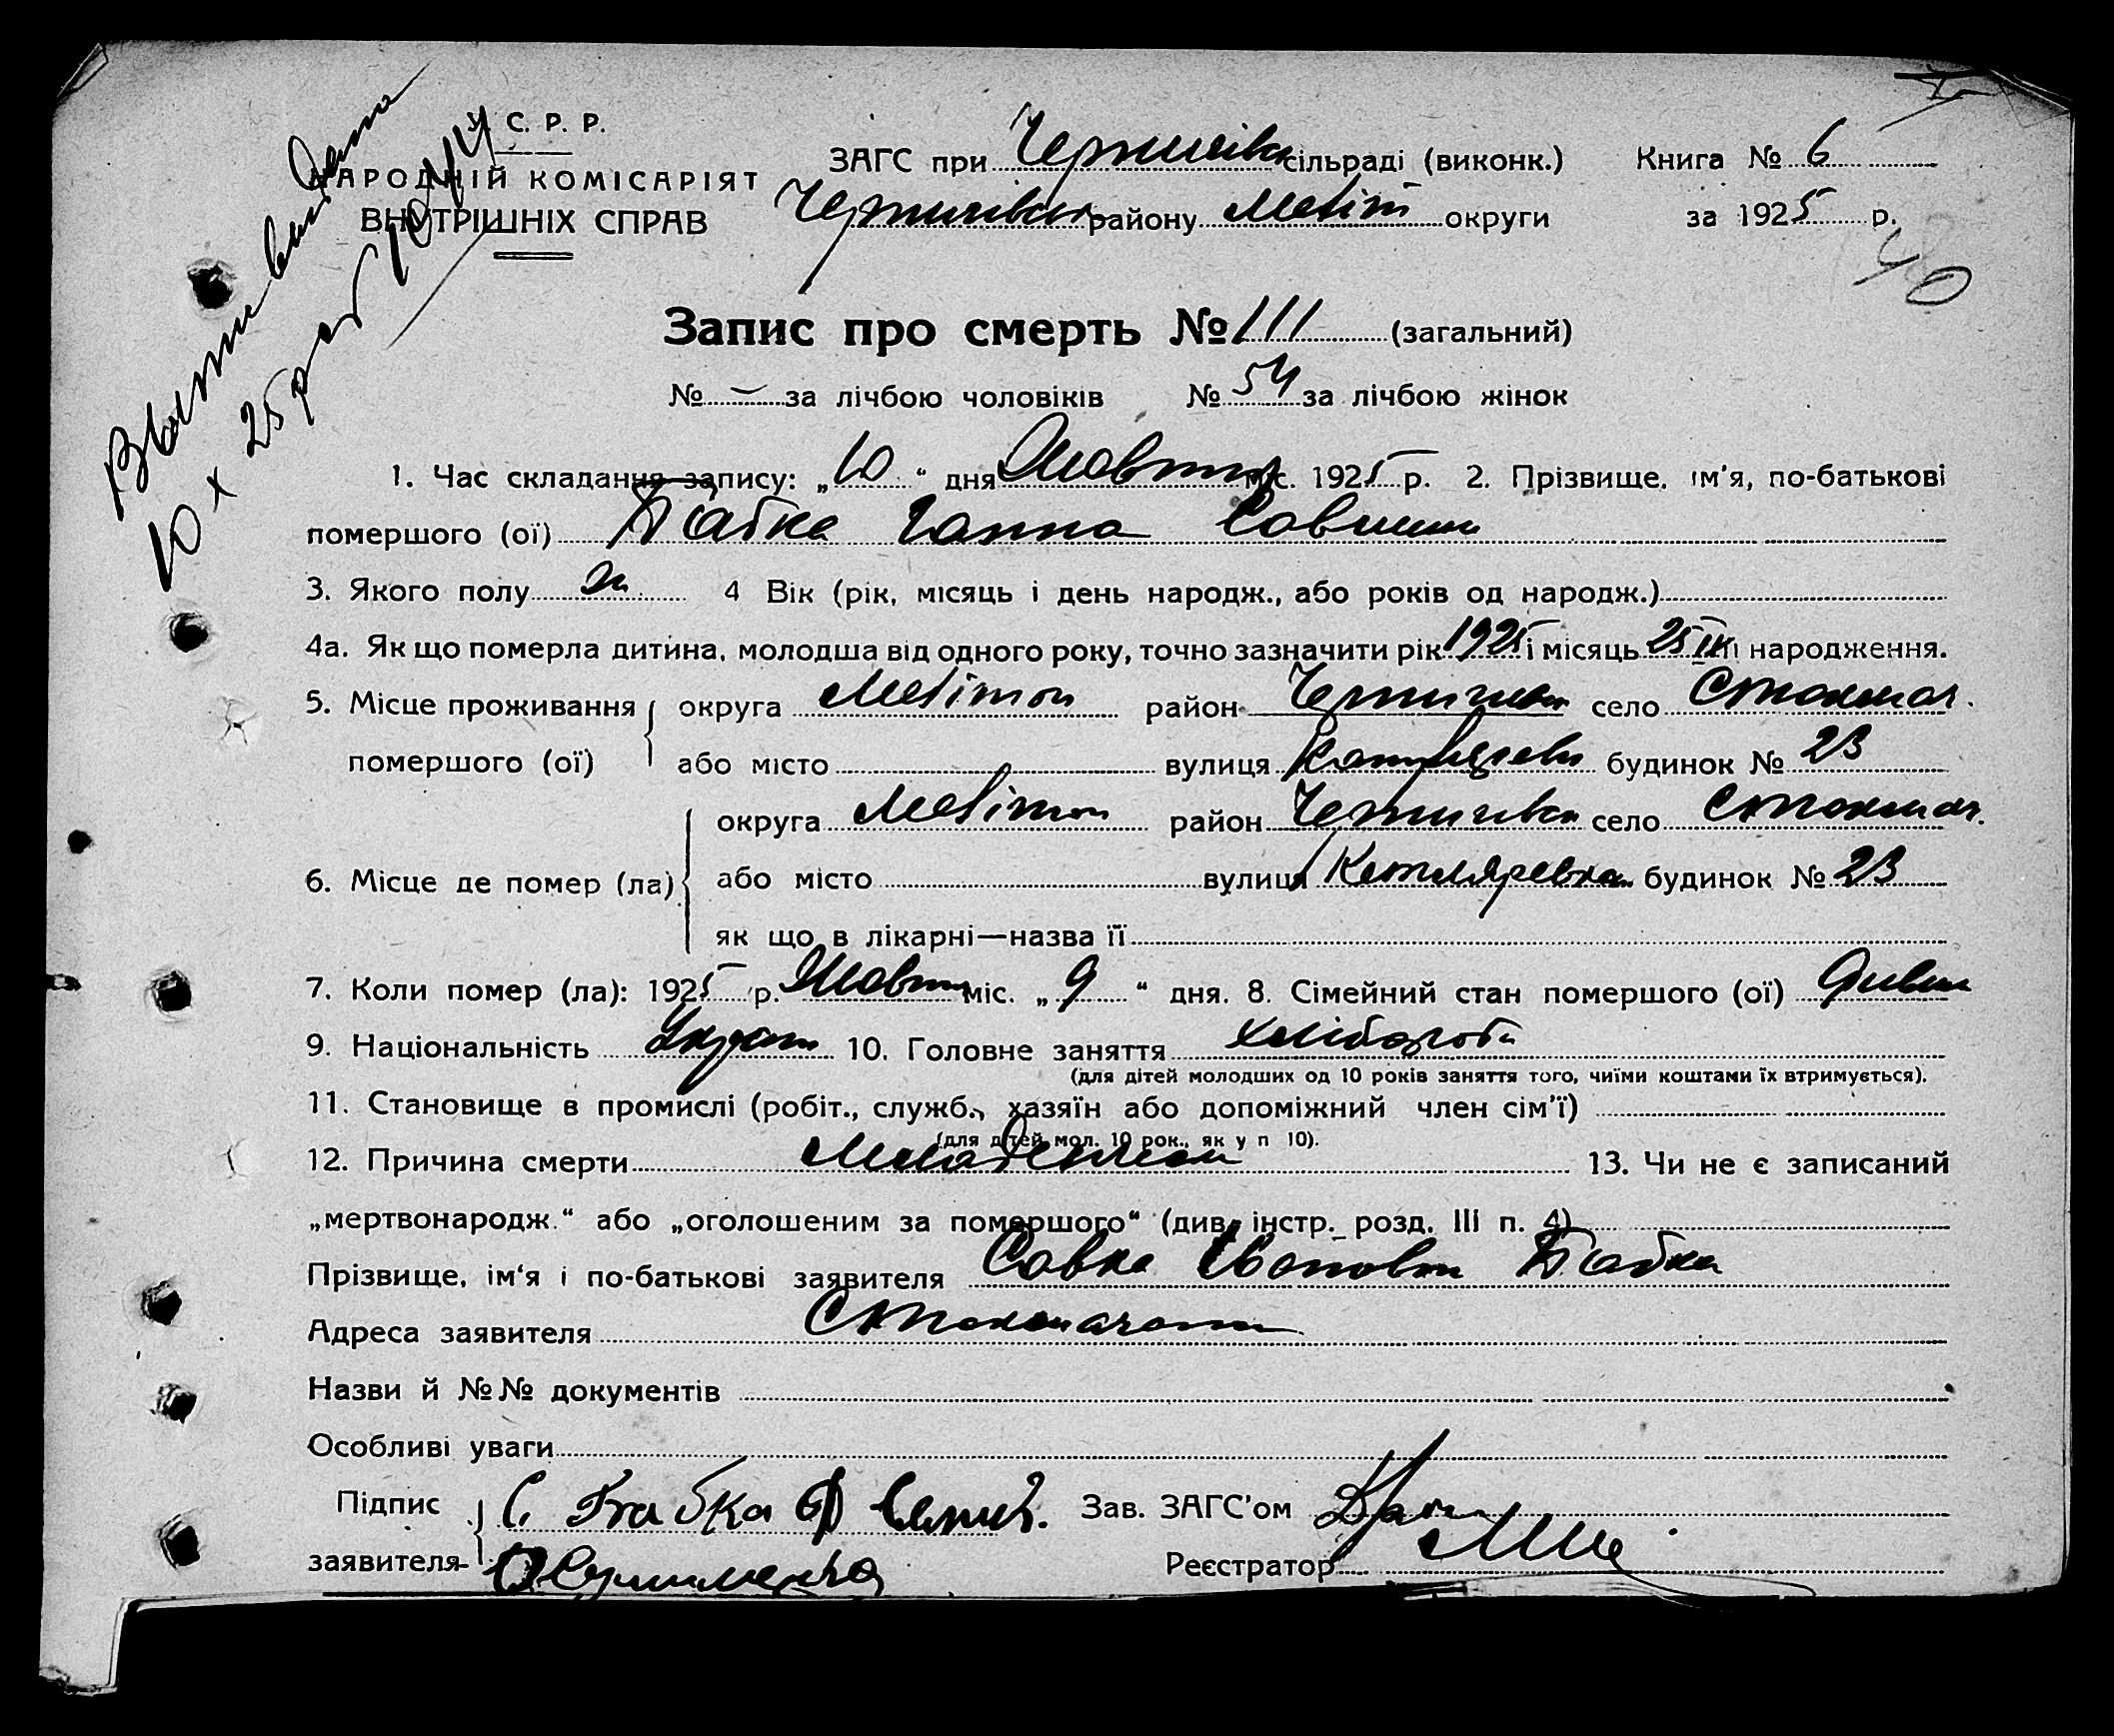 У. С. Р. Р.
НАРОДНІЙ КОМІСАРІЯТ
ВНУТРІШНІХ СПРАВ
ЗАГС при Чернигівк сільраді (виконк.) Книга № 6
району Меліт округи за 1925 р.
40
Запис про смерть № 111 (загальний)
№ – за лічбою чоловіків № 54 за лічбою жінок
1. Час складання запису: „10“ дня Жовтня міс. 1925 р. 2. Прізвище, ім'я, по-батькові
помершого (ої) Бабка Ганна Савишн
3. Якого полу ж 4 Вік (рік, місяць і день народж., або років од народж.)
4а. Як що померла дитина, молодша від одного року, точно зазначити рік 1925 і місяць 25 IX її народження.
5. Місце проживання помершого (ої) округа Мелітоп район село Стокопан.
або місто вулиця будинок № 23
6. Місце де помер (ла) округа Мелітоп район Чернигівк село
або місто вулиця Котляревка будинок № 23
як що в лікарні—назва її
7. Коли помер (ла): 1925 р. Жовтн міс. „9“ дня. 8. Сімейний стан помершого (ої)
9. Національність Україн 10. Головне заняття хлібороб
(для дітей молодших од 10 років заняття того, чиїми коштами їх втримується).
11. Становище в промислі (робіт., служб., хазяїн або допоміжний член сім'ї)
(для дітей мол. 10 рок., як у п 10).
12. Причина смерти 13. Чи не є записаний
„мертвонародж.“ або „оголошеним за помершого“ (див. інстр. розд. III п. 4)
Прізвище, ім'я і по-батькові заявителя Савка Іванович Бабка
Адреса заявителя
Назви й №№ документів
Особливі уваги
Підпис заявителя С. Бабка Зав. ЗАГС'ом
Реєстратор